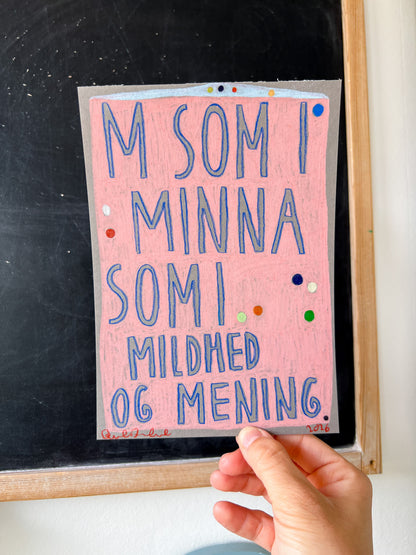 M SOM I
MINNA
SOM I
MILDHED
OG MENING
2026